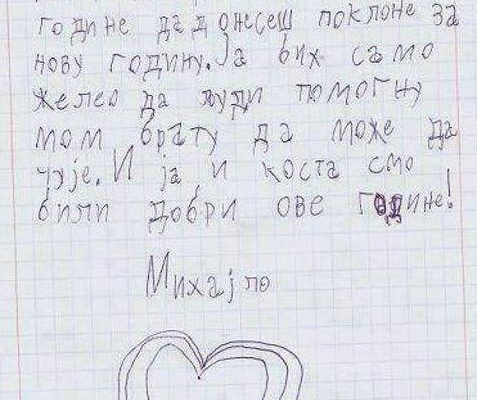 године да донесеш поклоне за
нову годину. Ја бих само
желео да људи помогну
мом брату да може да
чује. И ја и коста смо
били добри ове године!
Михајло